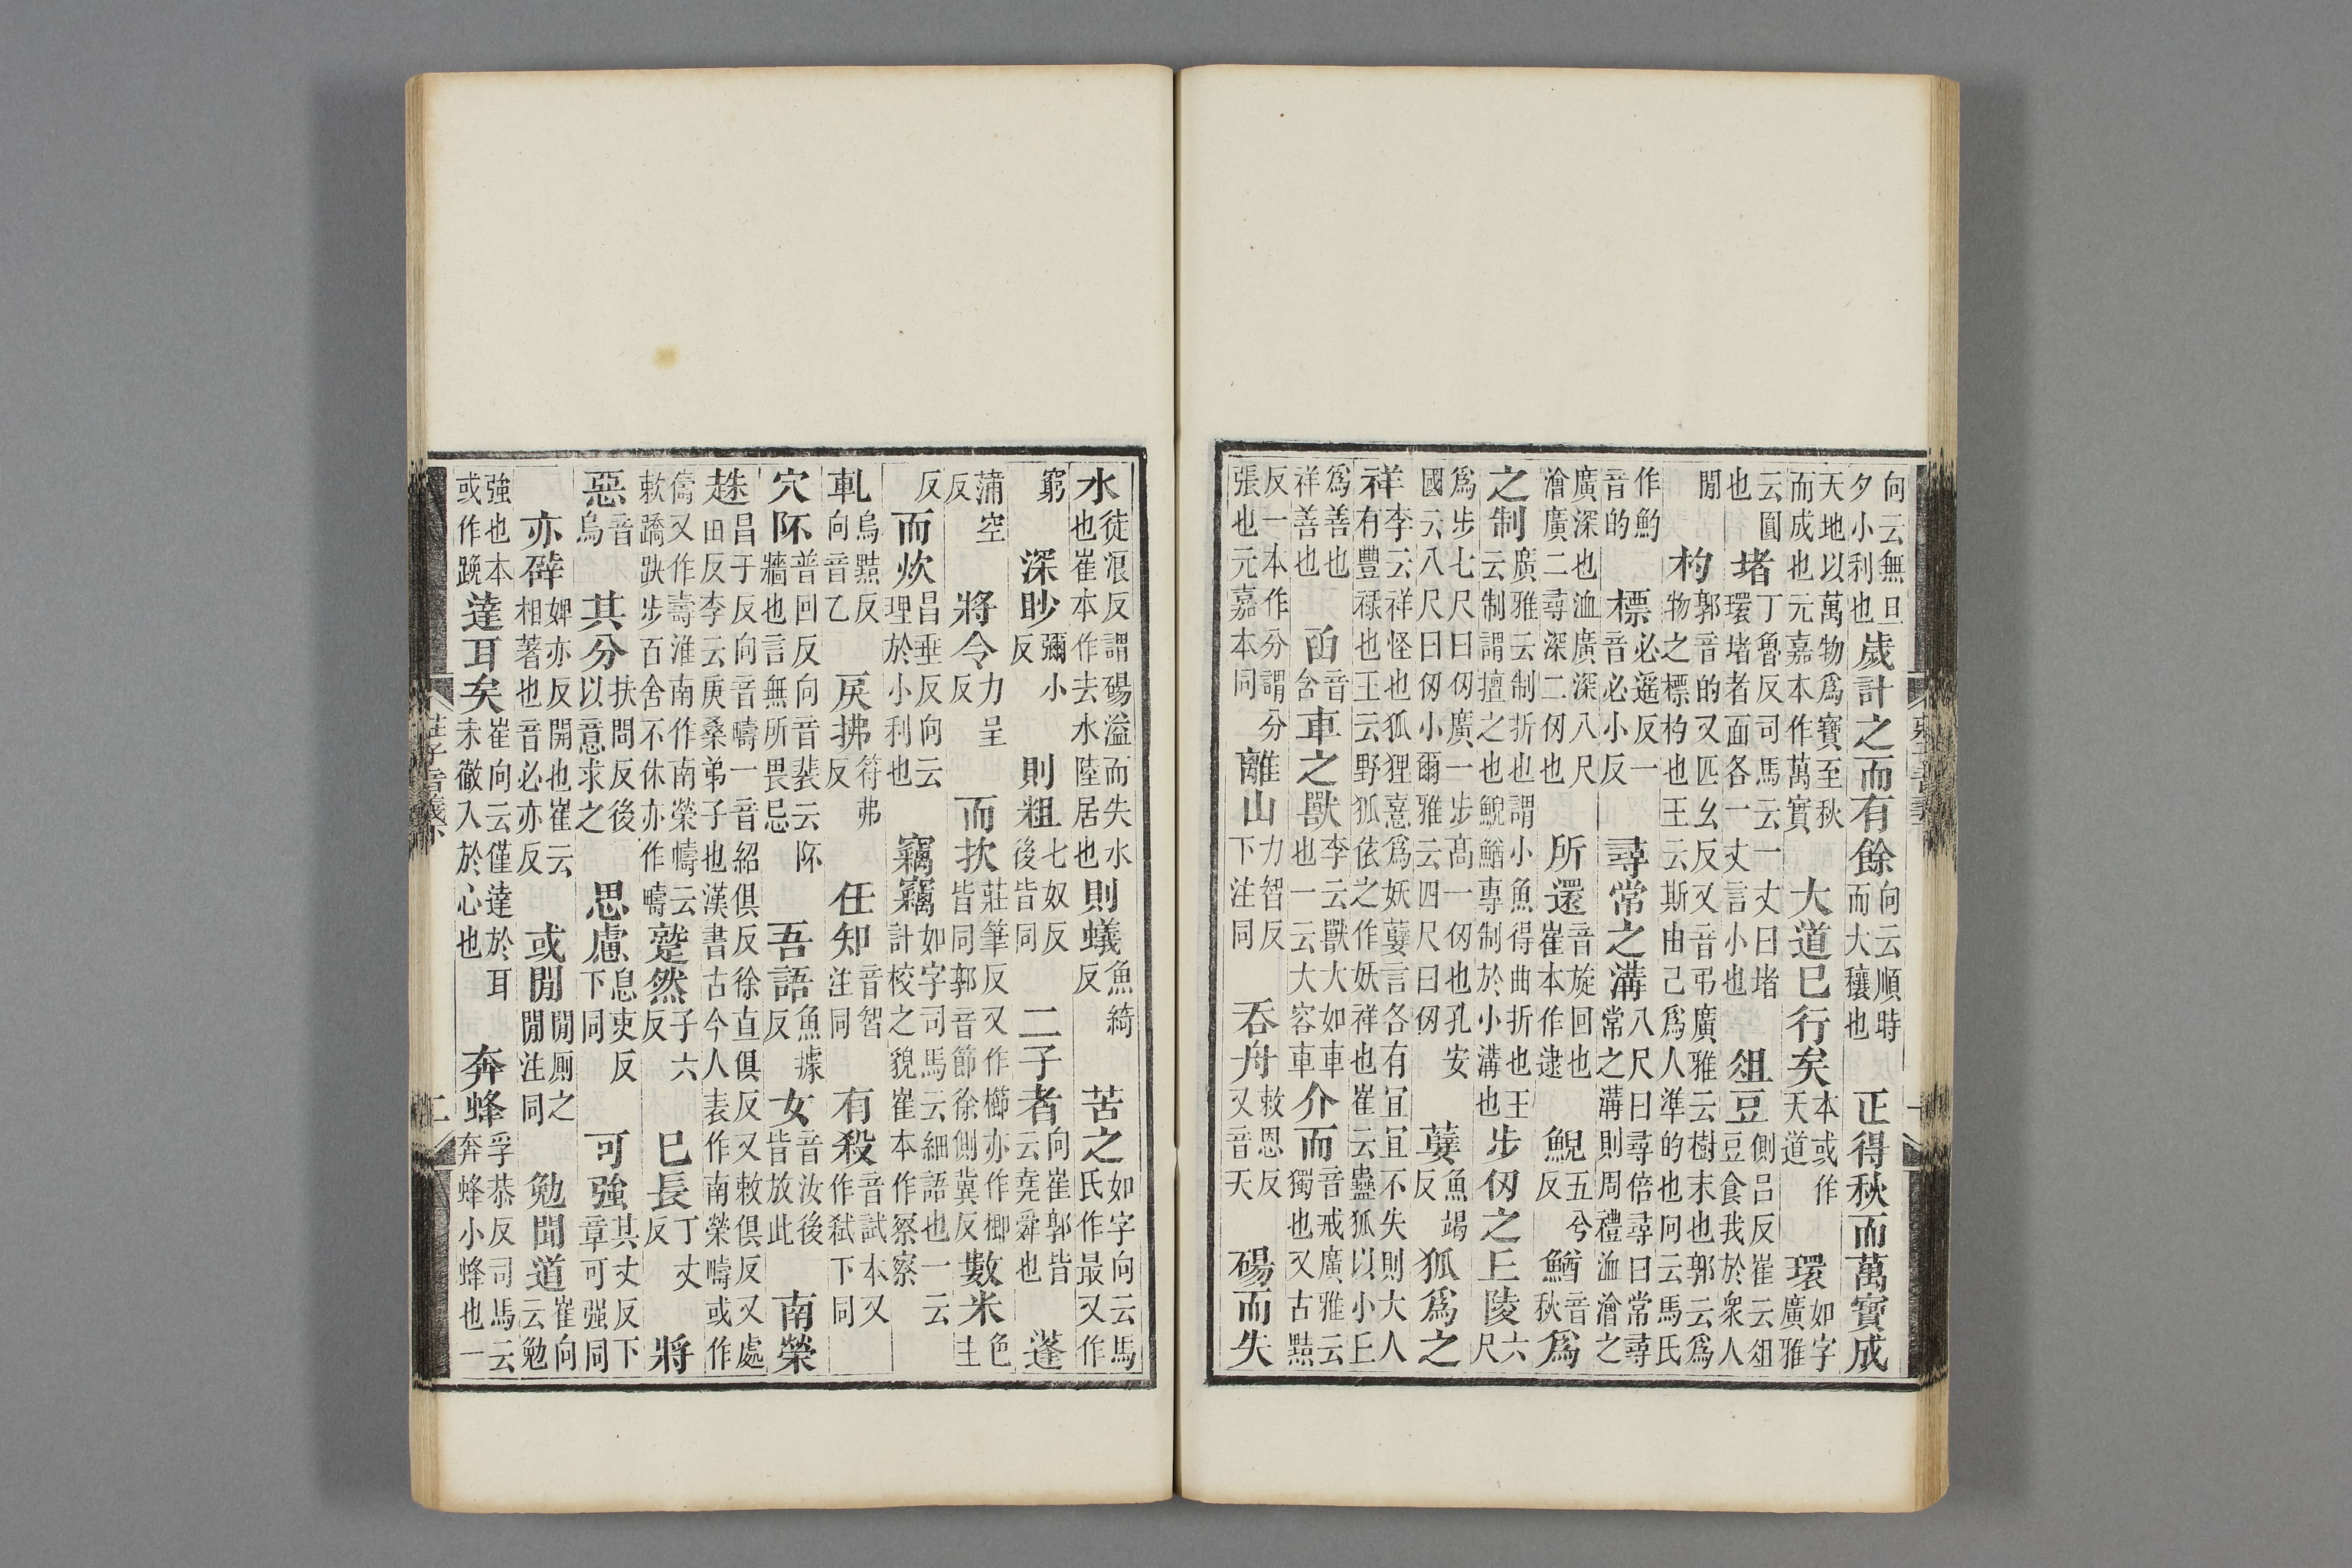 向云無旦夕小利也歲計之而有餘向云順時而大穰也正得秋而萬寶成
天地以萬物爲寶至秋而成也元嘉本作萬實大道已行矣本或作天道環如字廣雅
云圓也堵丁魯反司馬云一丈曰堵環堵者面各一丈言小也俎豆側吕反崔云俎豆食我於衆人
閒杓郭音的又匹幺反又音弔廣雅云樹末也郭云爲物之標杓也王云斯由己爲人準的也向云馬氏
作魡音的標必遥反一音必小反尋常之溝八尺曰尋倍尋曰常尋常之溝則周禮洫澮之
廣深也洫廣深八尺澮廣二尋深二仞也所還音旋回也崔本作逮鯢五兮反鰌音秋爲
之制廣雅云制折也謂小魚得曲折也王云制謂擅之也鯢鰌專制於小溝也步仞之丘陵六尺
爲步七尺曰仞廣一步高一仞也孔安國云八尺曰仞小爾雅云四尺曰仞㜸魚竭反狐爲之
祥李云祥怪也狐狸憙爲妖㜸言各有宜宜不失則大人有豐禄也王云野狐依之作妖祥也崔云蠱狐以小丘
爲善也祥善也函音含車之獸李云獸大如車也一云大容車介而音戒廣雅云獨也又古黠
反一本作分謂分張也元嘉本同離山力智反下注同吞舟敕恩反又音天碭而失
水徒浪反謂碭溢而失水也崔本作去水陸居也則蟻魚綺反苦之如字向云馬氏作最又作
窮深眇彌小反則粗七奴反後皆同二子者向崔郭皆云堯舜也蓬
蒲空反將令力呈反而扻莊筆反又作櫛亦作楖皆同郭音節徐側冀反數米色主
反而炊昌垂反向云理於小利也竊竊如字司馬云細語也一云計校之貌崔本作察察
軋烏黠反向音乙戾拂符弗反任知音智注同有殺音試本又作弑下同
穴阫普回反向音裴云阫牆也言無所畏忌吾語魚據反女音汝後皆放此南榮
趎昌于反向音疇一音紹俱反徐直俱反又敕俱反又處田反李云庚桑弟子也漢書古今人表作南榮疇或作
儔又作壽淮南作南榮幬云敕蹻趹步百舍不休亦作疇蹵然子六反已長丁丈反將
惡音烏其分扶問反後以意求之思慮息吏反下同可強其丈反下章可强同
亦礔婢亦反開也崔云相著也音必亦反或閒閒厠之閒注同勉聞道崔向云勉
強也本或作達耳矣崔向云僅達於耳未徹入於心也奔蜂孚恭反司馬云奔蜂小蜂也一
莊子音義下
二